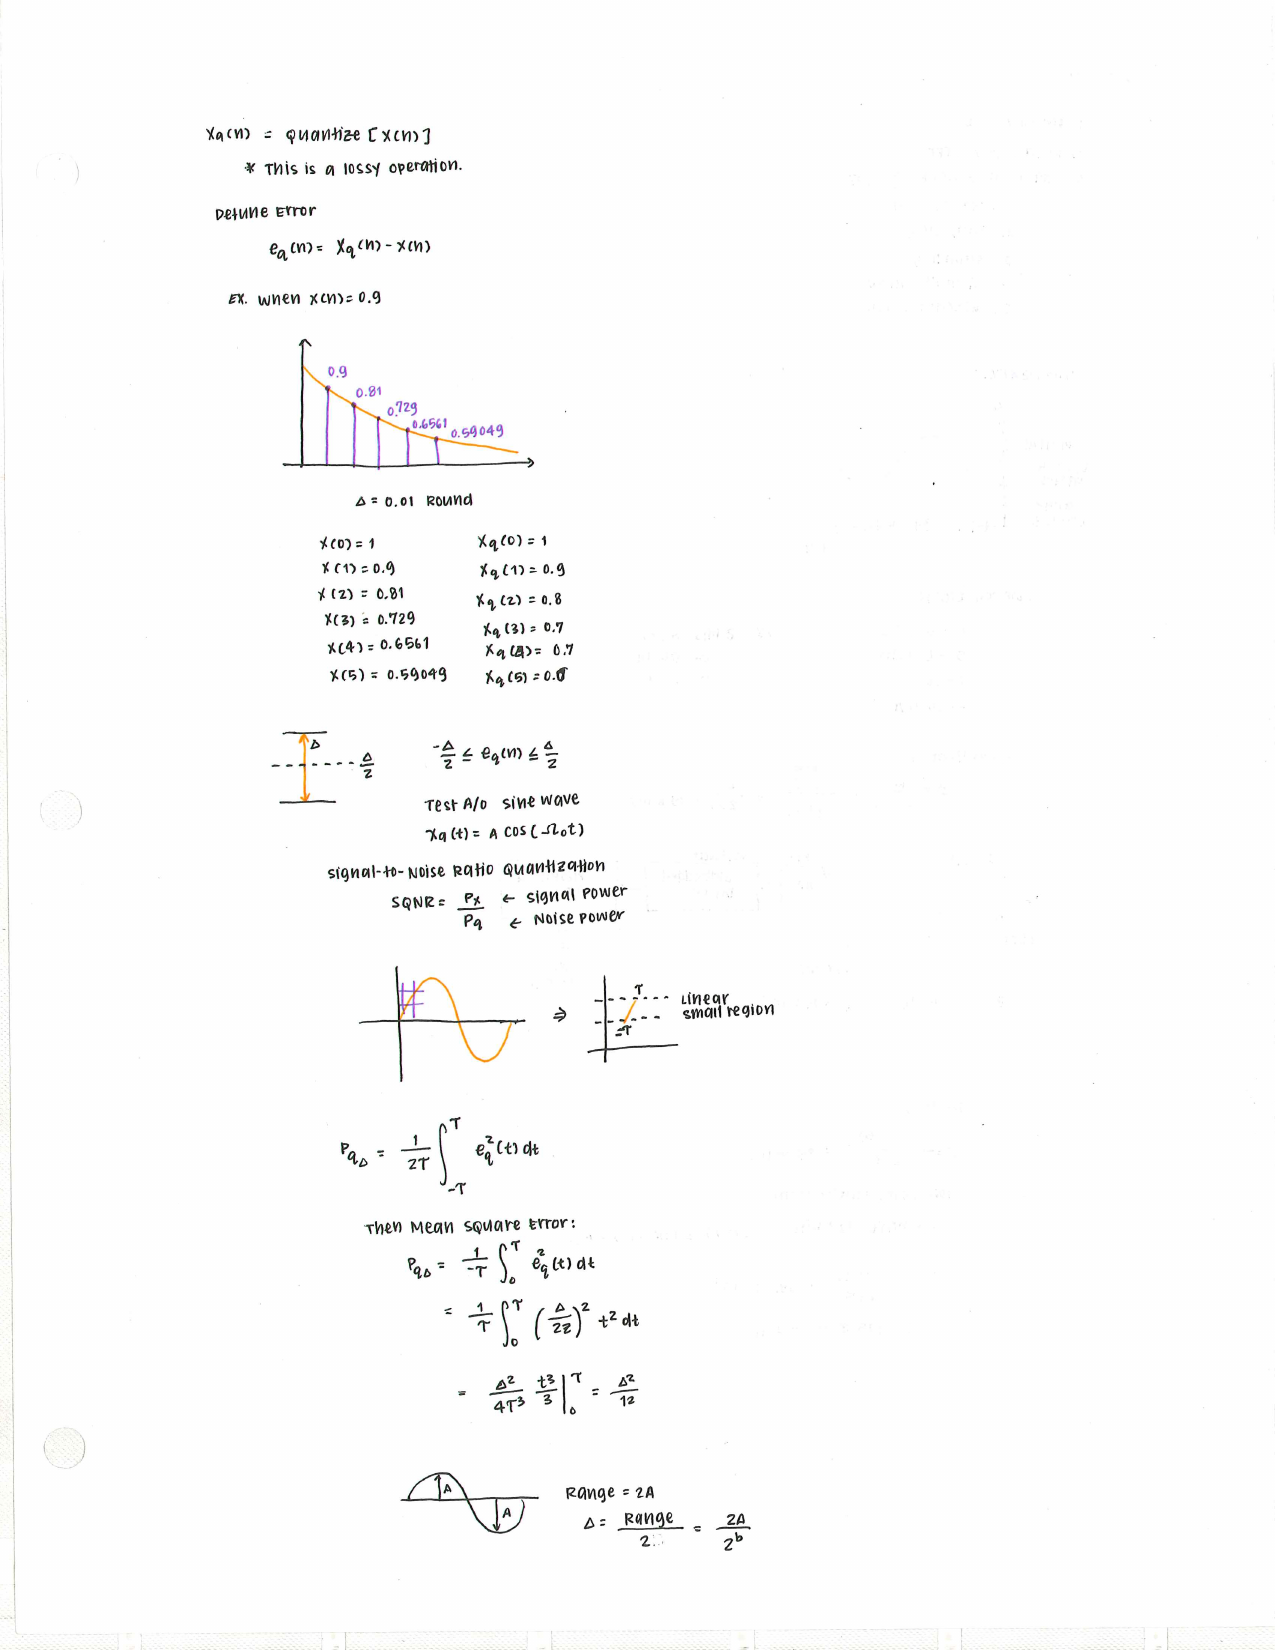 Xq(n) = quantize [x(n)]
* This is a lossy operation.
Detune Error
eq(n) = Xq(n) - x(n)
EX. when x(n) = 0.9
0.9
0.81
0.729
0.6561
0.59049
Δ = 0.01 Round
x(0) = 1 Xq(0) = 1
x(1) = 0.9 Xq(1) = 0.9
x(2) = 0.81 Xq(2) = 0.8
x(3) = 0.729 Xq(3) = 0.7
x(4) = 0.6561 Xq(4) = 0.7
x(5) = 0.59049 Xq(5) =
Δ
Δ/2
-Δ/2 ≤ eq(n) ≤ Δ/2
Test A/D sine wave
xa(t) = A cos(Ω0t)
Signal-to-Noise Ratio Quantization
SQNR = Px/Pq ← signal power
← Noise power
⇒
τ
-τ
Linear
small region
PqΔ = 1/2τ ∫_{-τ}^{τ} eq²(t) dt
Then Mean square Error:
PqΔ = 1/-τ ∫_0^τ eq²(t) dt
= 1/τ ∫_0^τ (Δ/2z)² t² dt
= Δ²/4τ³ t³/3 |_0^τ = Δ²/12
A
A
Range = 2A
Δ = Range/2 = 2A/2^b